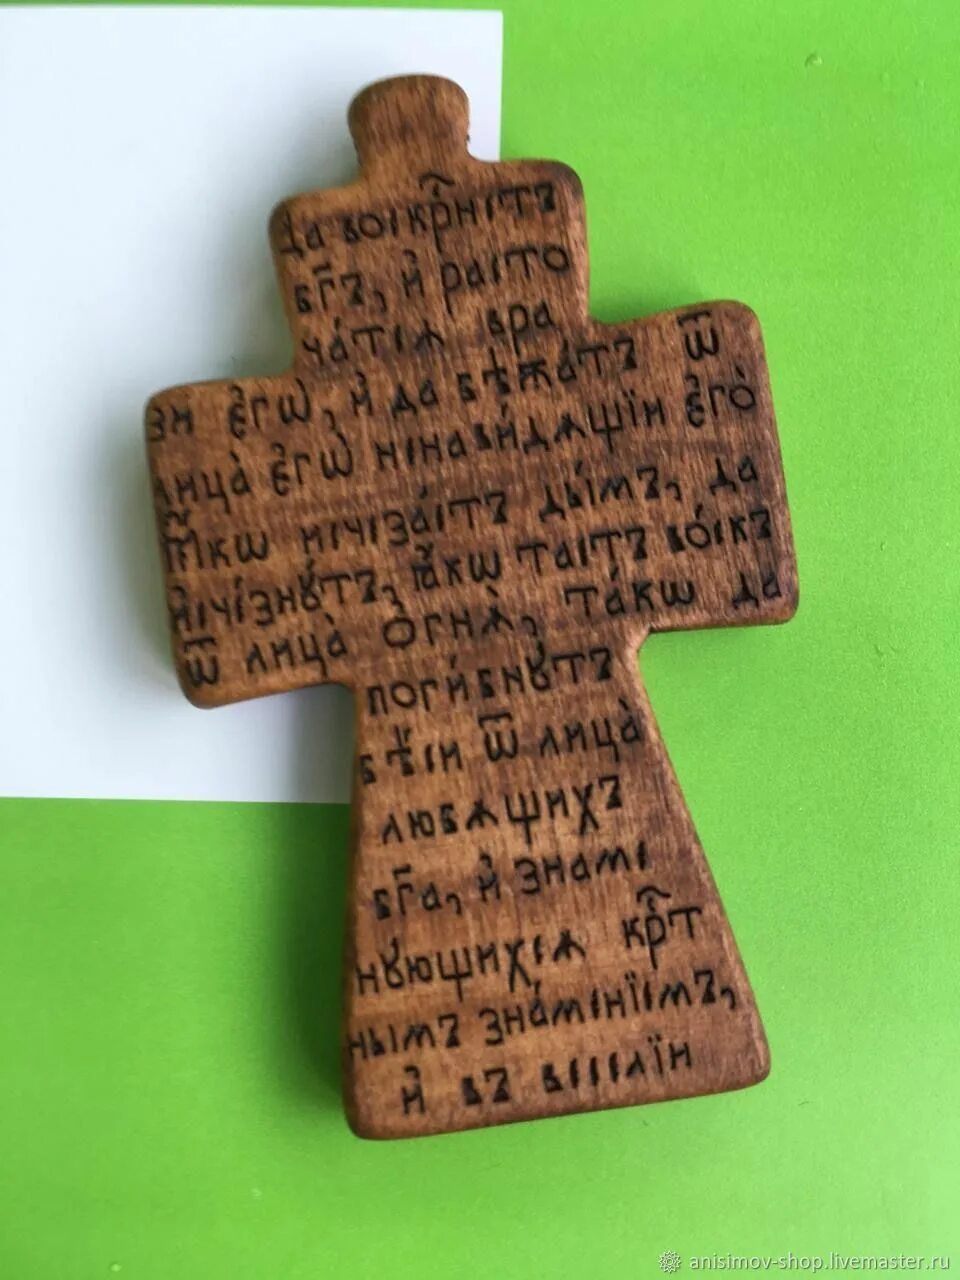 да воскр҇нетъ
бг҃ъ, и҆ расто
ча́тсѧ вра
зи є҆гѡ̀, и҆ да бѣжа́тъ ѿ
лица̀ є҆гѡ̀ ненави́дѧщїи є҆го̀
ꙗ҆́кѡ и҆счеза́етъ ды́мъ, да
и҆сче́знꙋтъ, ꙗ҆́кѡ таетъ во́скъ
ѿ лица̀ ѻ҆гнѧ̀, та́кѡ да
поги́бнꙋтъ
бѣ́си ѿ лица̀
любѧщихъ
бг҃а, и҆ знаме
нꙋющихсѧ кр҇т
нымъ зна́менїемъ,
и҆ въ веселїи
anisimov-shop.livemaster.ru